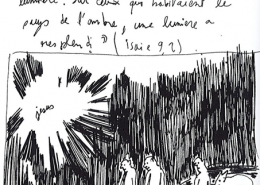 lumière. sur ceux qui habitaient le
pays de l'ombre, une lumière a
resplendi" (Isaïe 9,2)
jesus